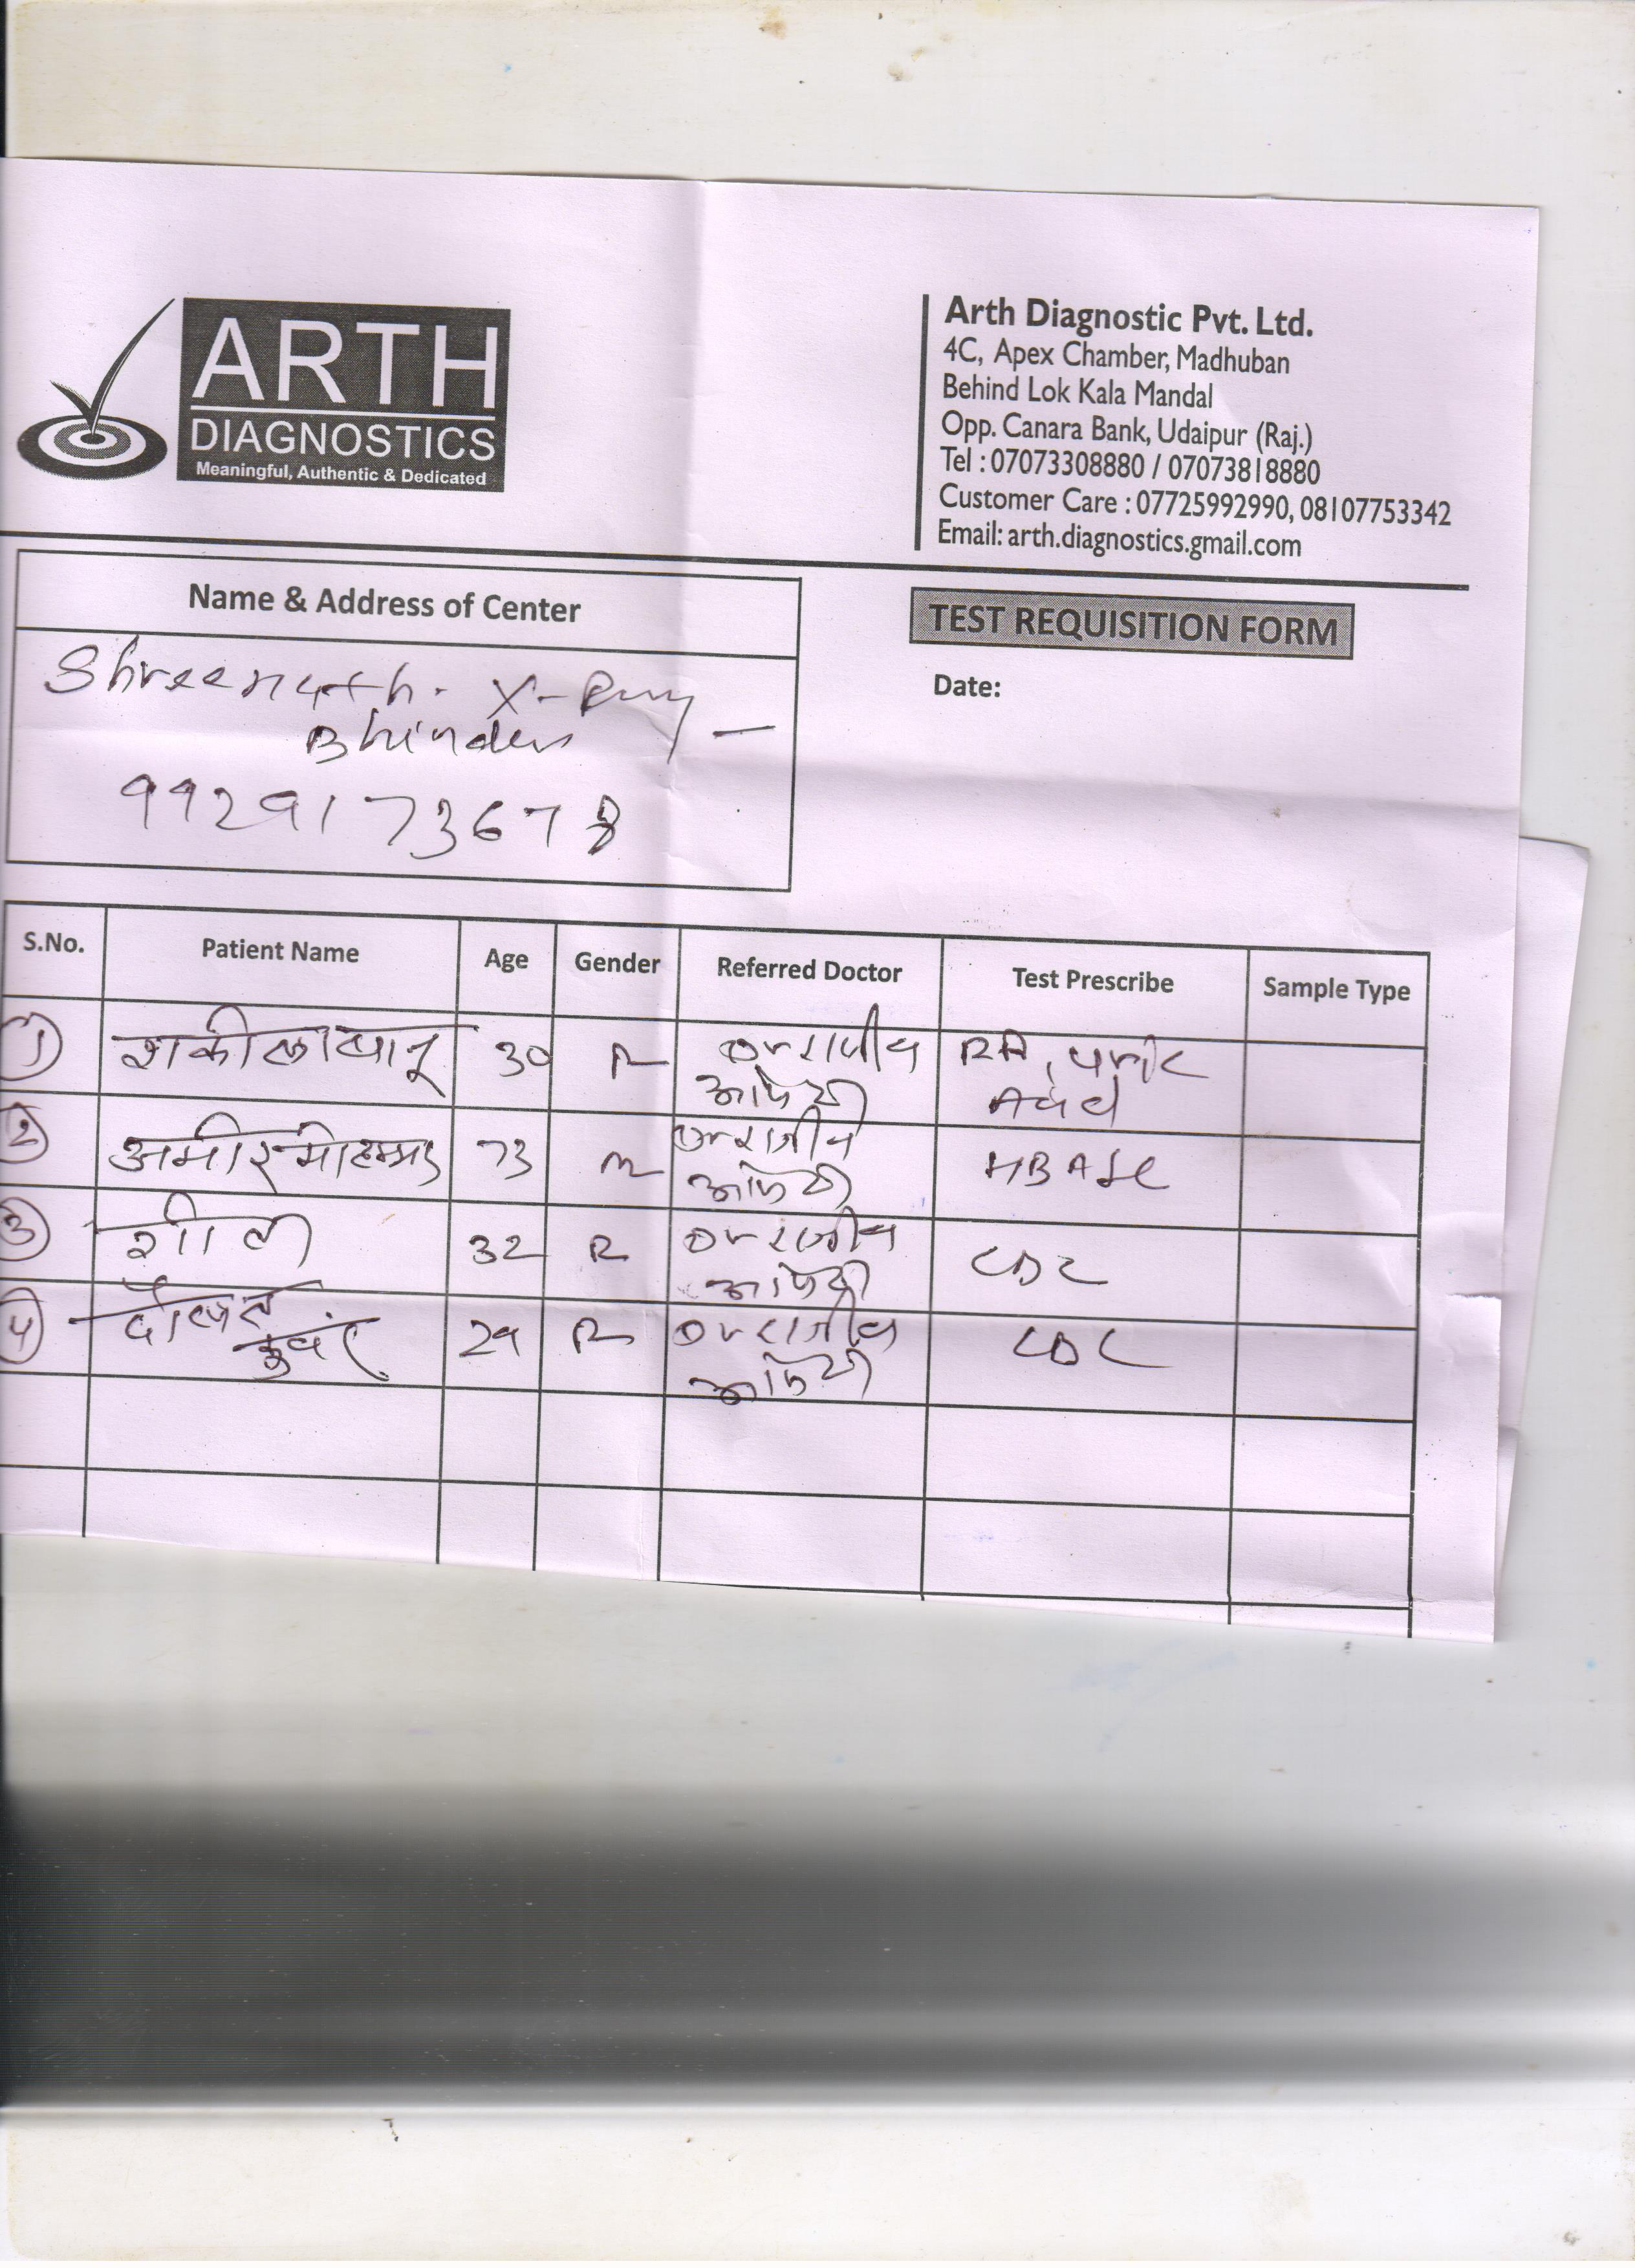 ARTH
DIAGNOSTICS
Meaningful, Authentic & Dedicated
Arth Diagnostic Pvt. Ltd.
4C, Apex Chamber, Madhuban
Behind Lok Kala Mandal
Opp. Canara Bank, Udaipur (Raj.)
Tel : 07073308880 / 07073818880
Customer Care : 07725992990, 08107753342
Email: arth.diagnostics.gmail.com
Name & Address of Center
Shreenath. X-Ray
Bhinder
9929173678
TEST REQUISITION FORM
Date:
S.No. Patient Name Age Gender Referred Doctor Test Prescribe Sample Type
1 शकीला बानू 30 Dr राजीव RA, Uric
2 अमीर मोहम्मद 73 m Dr राजीव HBA1C
3 32 Dr राजीव CBC
4 दौलत कुवंर 29 Dr राजीव CBC